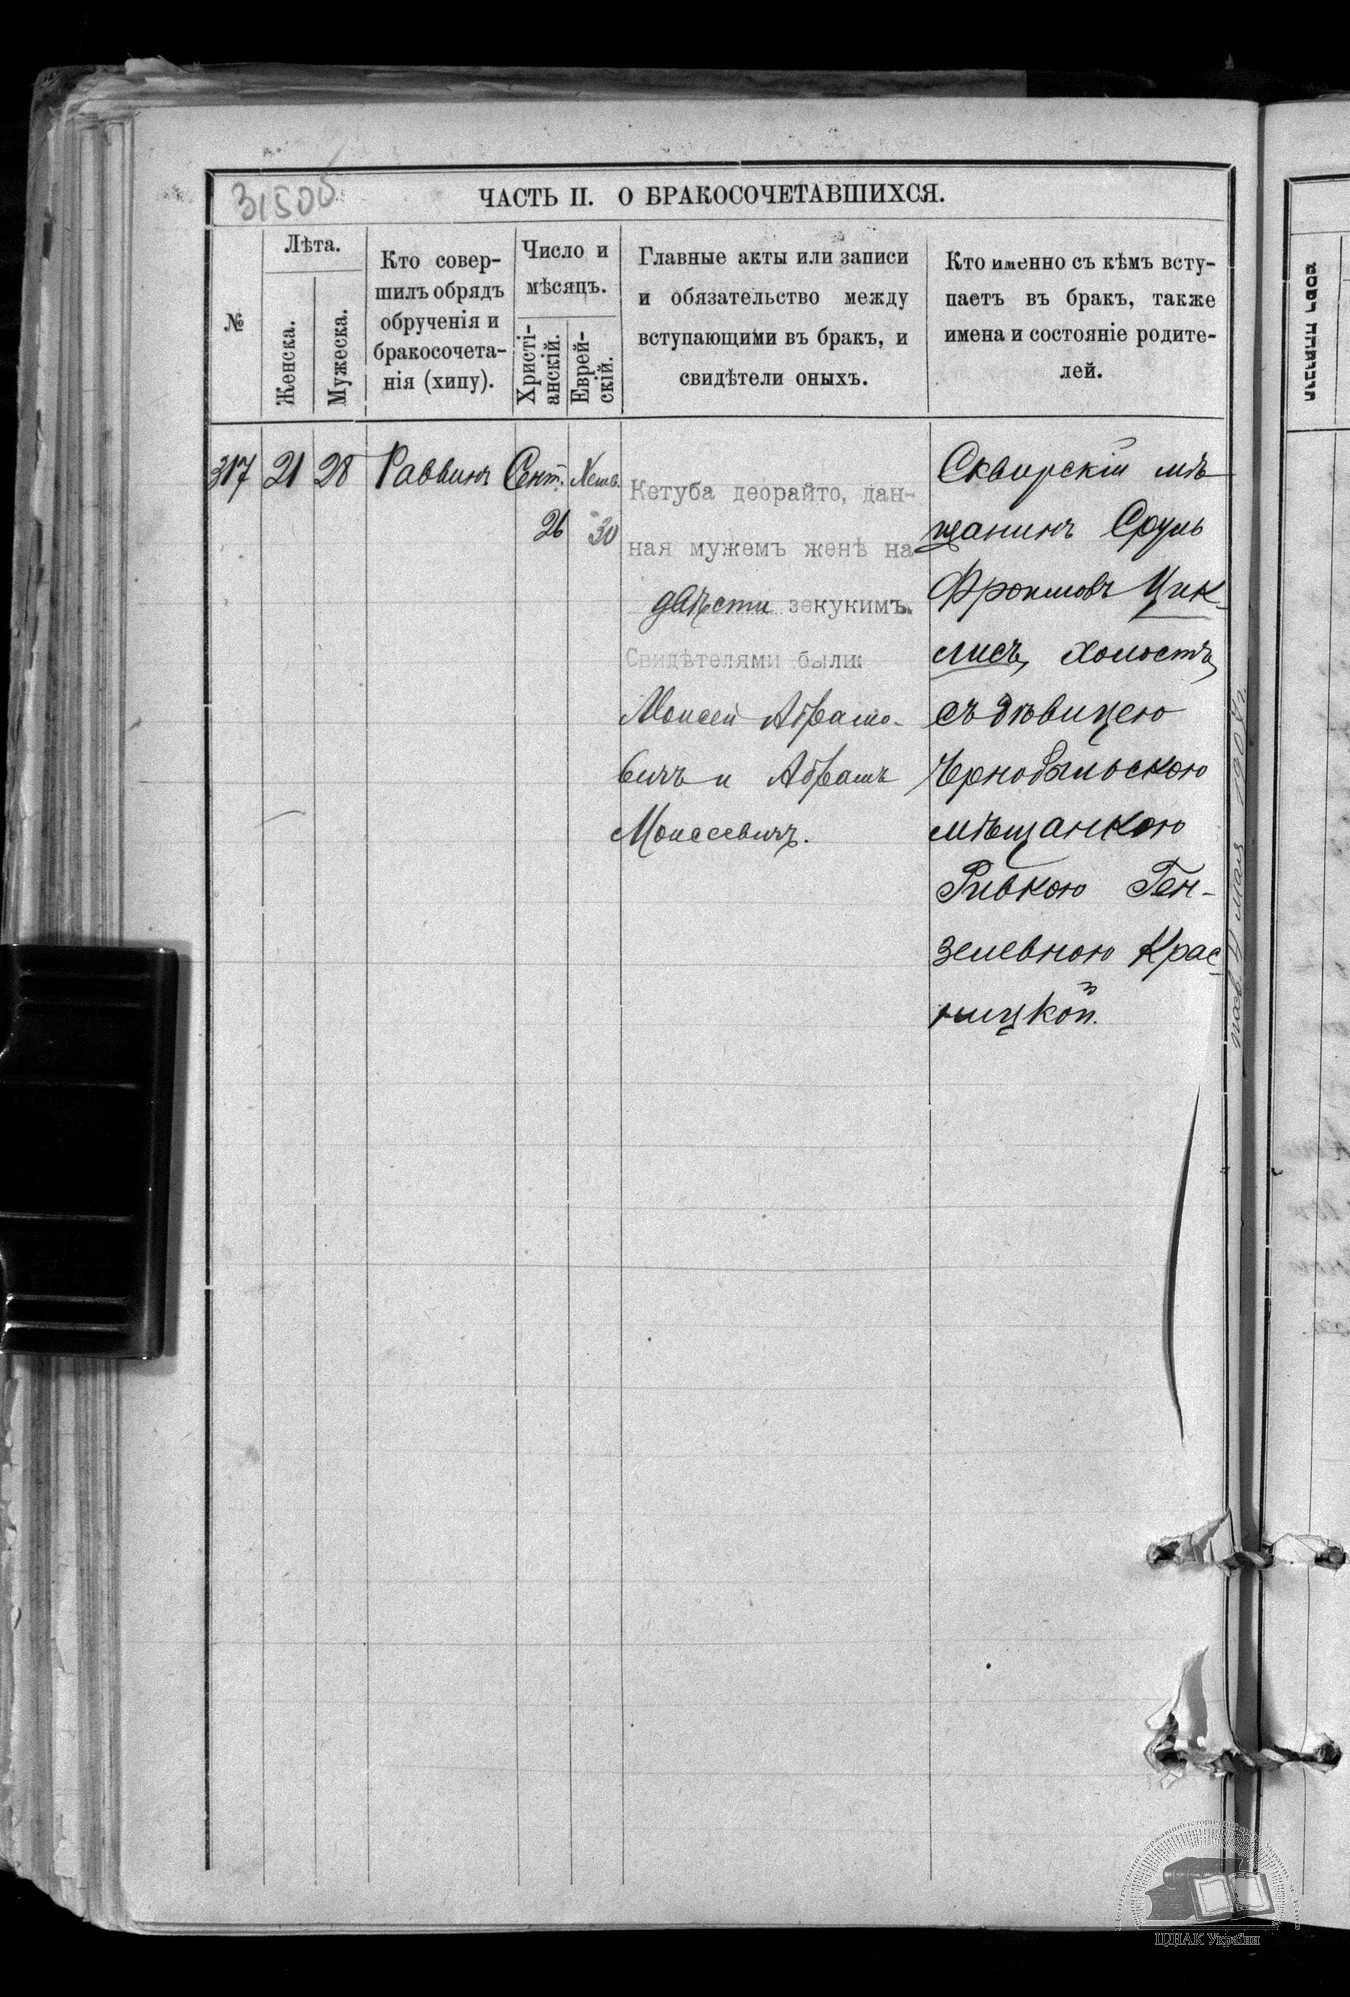 31505
ЧАСТЬ II. О БРАКОСОЧЕТАВШИХСЯ.
№
Лѣта.
Женска.
Мужеска.
Кто совер-
шилъ обрядъ
обрученія и
бракосочета-
нія (хипу).
Число и
мѣсяцъ.
Христі-
анскій.
Еврей-
скій.
Главные акты или записи
и обязательство между
вступающими въ бракъ, и
свидѣтели оныхъ.
Кто именно съ кѣмъ всту-
паетъ въ бракъ, также
имена и состояніе родите-
лей.
317 21 28 Раввинъ Сент. Хешв.
26 30
Кетуба деорайто, дан-
ная мужемъ женѣ на
двѣсти зекукимъ.
Свидѣтелями были:
Моисей Абрамо-
вичъ и Абрамъ
Моисеевичъ.
Сквирскій мѣ
щанинъ Сруль
Фроимовъ Цик-
лисъ, холостъ,
съ дѣвицею
Чернобыльскою
мѣщанкою
Ривкою Ген-
зелевною Крас-
ницкой.
4 мая 1908 г.
ЦДІАК України